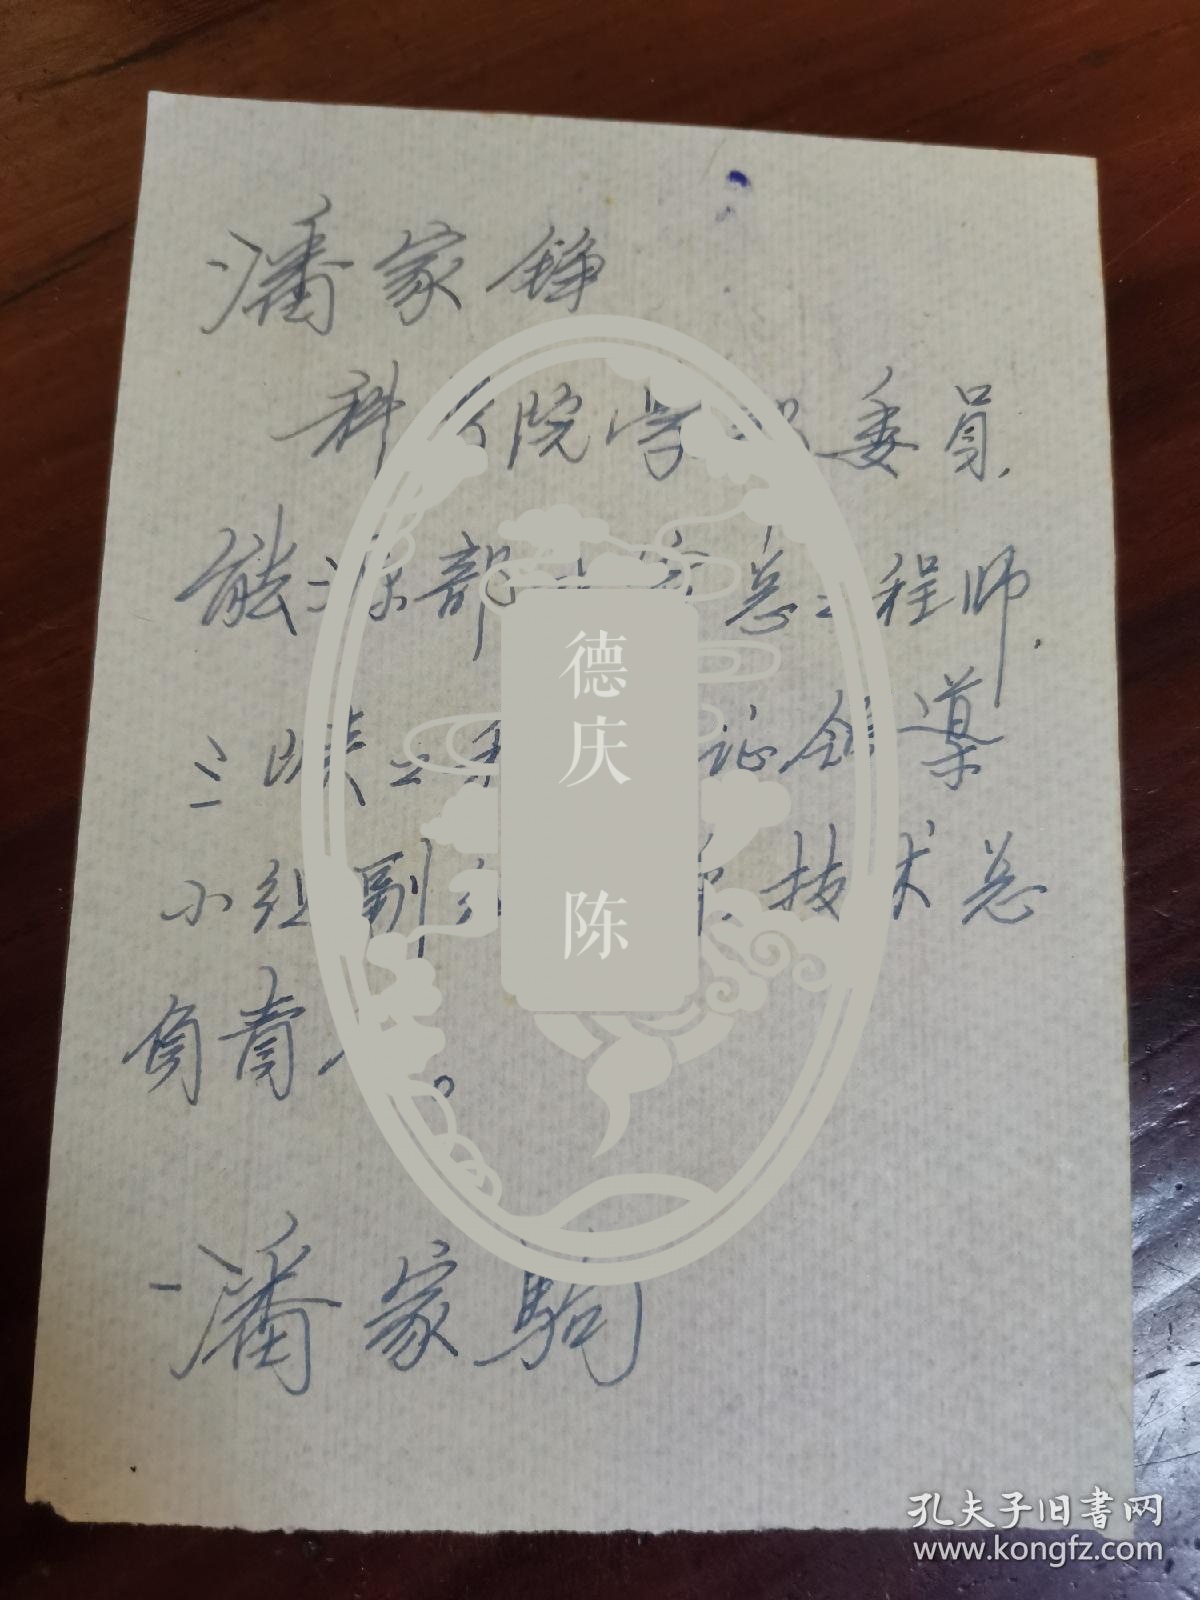 潘家铮
科 院学 委员,
能源部 总工程师,
三峡工程 证领导
小组副 技术总
负责人。
潘家駒
德庆 陈
孔夫子旧书网
www.kongfz.com